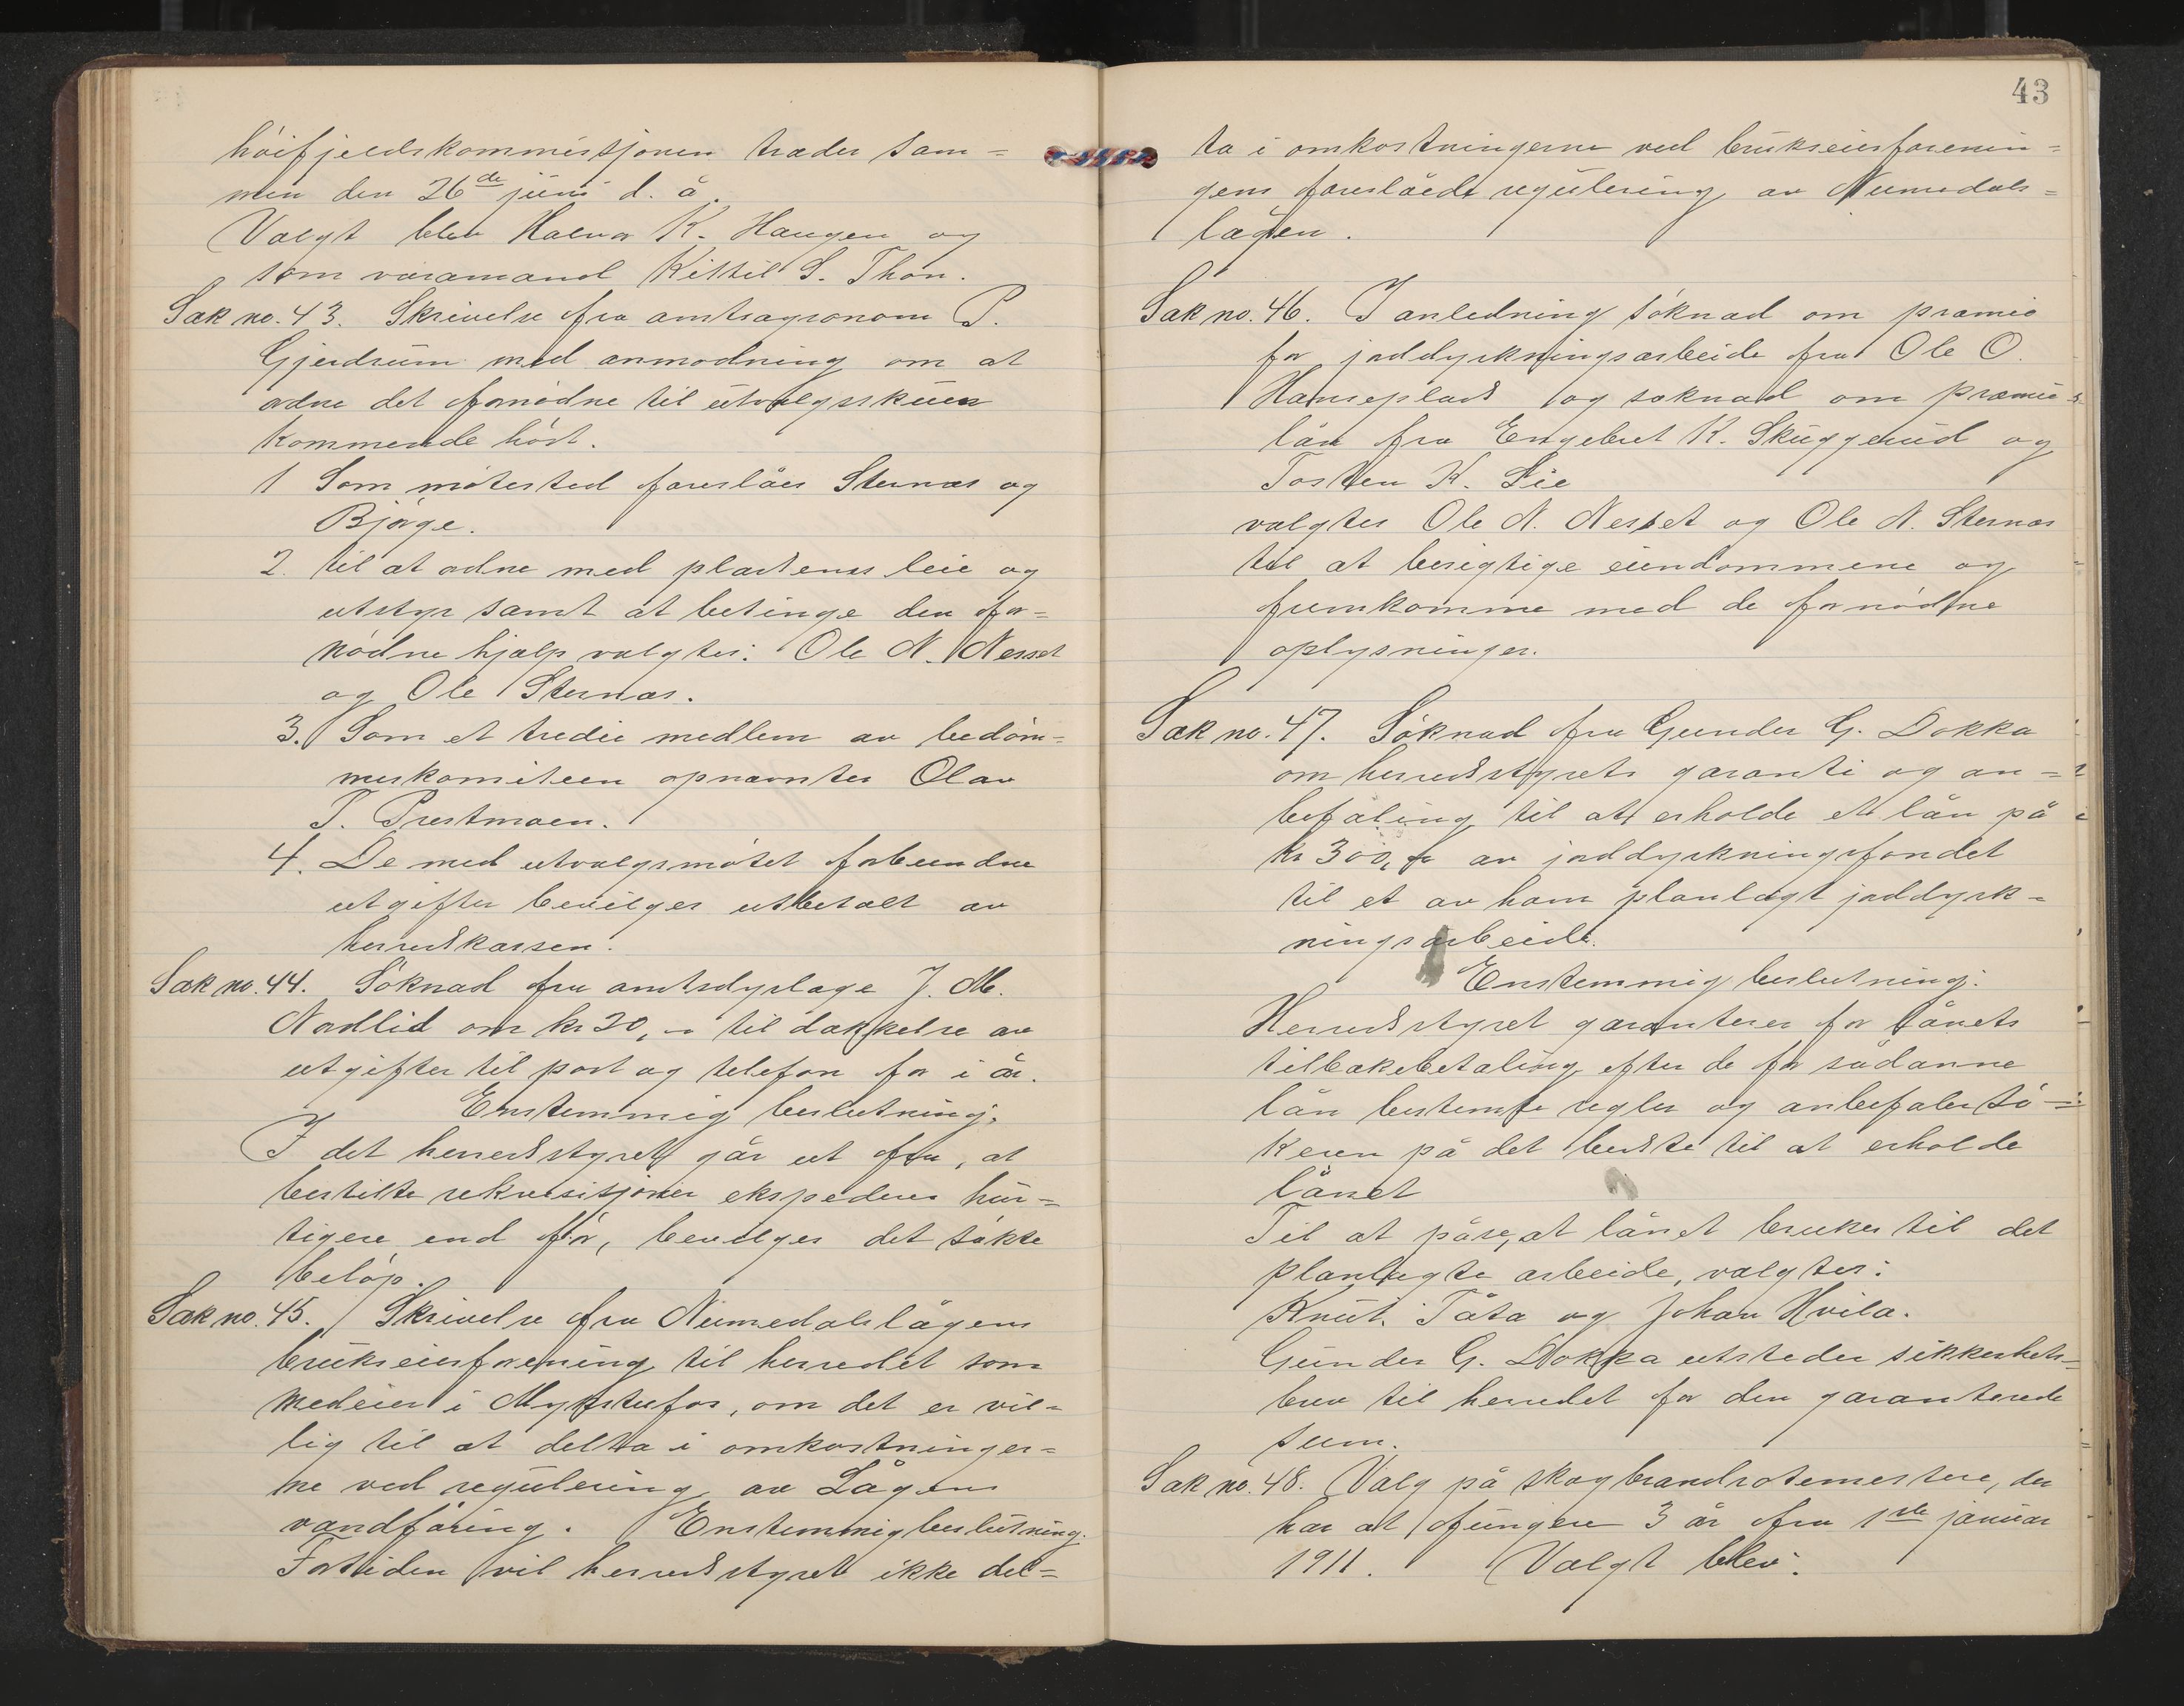 høifjeldskommissjonen træder sam=
men den 26de juni d. å.
Valgt blev Halvor K. Haugen og
som varamand Kittil S. Thon.
Sak no. 43. Skrivelse fra amtsagronom P.
Gjerdrum med anmodning om at
ordne det fornødne til utvalgsskuen
kommende høst.
1 Som møtested foreslåes Sternæs og
Bjørge.
2. til at ordne med pladsens leie og
utstyr samt at betinge den for=
nødne hjælp valgtes: Ole N. Nesset
og Ole Sternæs.
3. Som et tredie medlem av bedøm=
meskomiteen opnævntes Olav
T. Prestmoen.
4. De med utvalgsmøtet forbundne
utgifter bevilges utbetalt av
herredskassen.
Sak no. 44. Søknad fra amtsdyrlæge J. M.
Nordlid om kr 20,- til dækkelse av
utgifter til post og telefon for i år.
Enstemmig beslutning:
I det herredsstyret går ut fra, at
bestilte rekvisisjoner ekspederes hur=
tigere end før, bevilges det søkte
beløp.
Sak no. 45. Skrivelse fra Numedalslågens
brukseierforening til herredet som
medeier i Mykstufos, om det er vil=
lig til at delta i omkostninger=
ne ved regulering av Lågens
vandføring. Enstemmig beslutning.
Fortiden vil herredsstyret ikke del=
43
ta i omkostningerne ved brukseierforenin=
gens foreslåede regulering av Numedals=
lågen.
Sak no. 46. I anledning søknad om præmie
for jorddyrkningsarbeide fra Ole O.
Hanseplads og søknad om præmie=
lån fra Engebret K. Skuggerud og
Tosten K. Lie
valgtes Ole N. Nesset og Ole N. Sternæs
til at besigtige eiendommene og
fremkomme med de fornødne
oplysninger.
Sak no. 47. Søknad fra Gunder G. Dokka
om herredsstyrets garanti og an=
befaling til at erholde et lån på
kr 300,- av jorddyrkningsfondet
til et av ham planlagt jorddyrk=
ningsarbeide.
Enstemmig beslutning:
Herredsstyret garanterer for lånets
tilbakebetaling efter de for sådanne
lån bestemte regler og anbefaler sø=
keren på det bedste til at erholde
lånet
Til at påse, at lånet brukes til det
planlagte arbeide, valgtes:
Knut Tåta og Johan Hvila.
Gunder G. Dokka utsteder sikkerhets=
brev til herredet for den garanterede
sum.
Sak no. 48. Valg på skogbrandrotemestere, der
har at fungere 3 år fra 1ste januar
1911. Valgt blev: